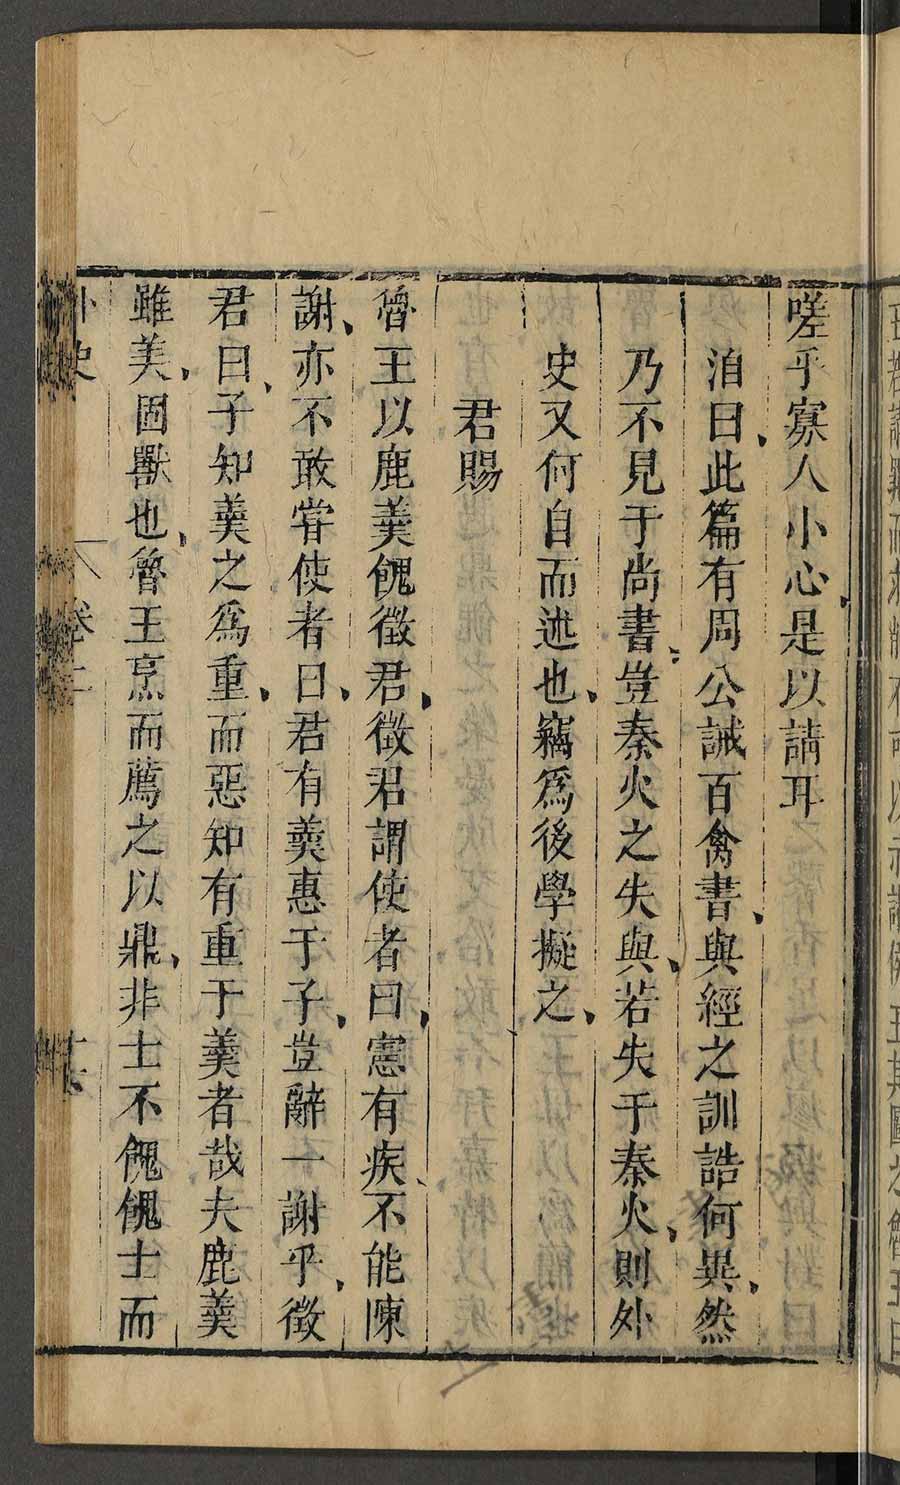 嗟乎寡人小心是以請耳
泊曰此篇有周公誡百禽書與經之訓誥何異然
乃不見于尚書豈秦火之失與若失于秦火則外
史又何自而述也竊爲後學擬之
君賜
魯王以鹿羹餽徵君徵君謂使者曰憲有疾不能陳
謝亦不敢甞使者曰君有羹惠于子豈辭一謝乎徵
君曰子知羹之爲重而惡知有重于羹者哉夫鹿羹
雖美固獸也魯王烹而薦之以鼎非士不餽餽士而
外史
卷二